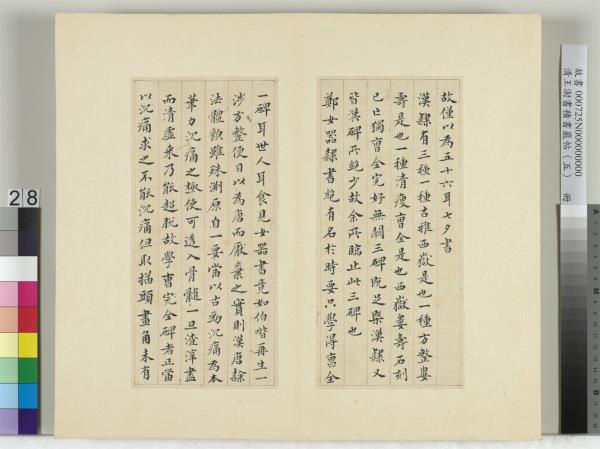 故僅以為五十六耳七夕書
漢隸有三種一種古雅西嶽是也一種方整婁
壽是也一種清瘦曹全是也西嶽婁壽石刻
已亡獨曹全完好無闕三碑既足槩漢隸又
皆漢碑所絕少故余所臨止此三碑也
鄭女器隸書絕有名於時要只學得曹全
一碑耳世人耳食見女器書竟如伯喈再生一
涉方整便目以為唐而厭棄之實則漢唐隸
法體貌雖殊淵原自一要當以古勁沉痛為本
筆力沉痛之極使可透入骨髓一旦渣滓盡
而清虛來乃能超脫故學曹完全碑者正當
以沉痛求之不能沉痛但取描頭畫角未有
故書 000725N000000000
清王澍書積書巖帖（五） 冊
28